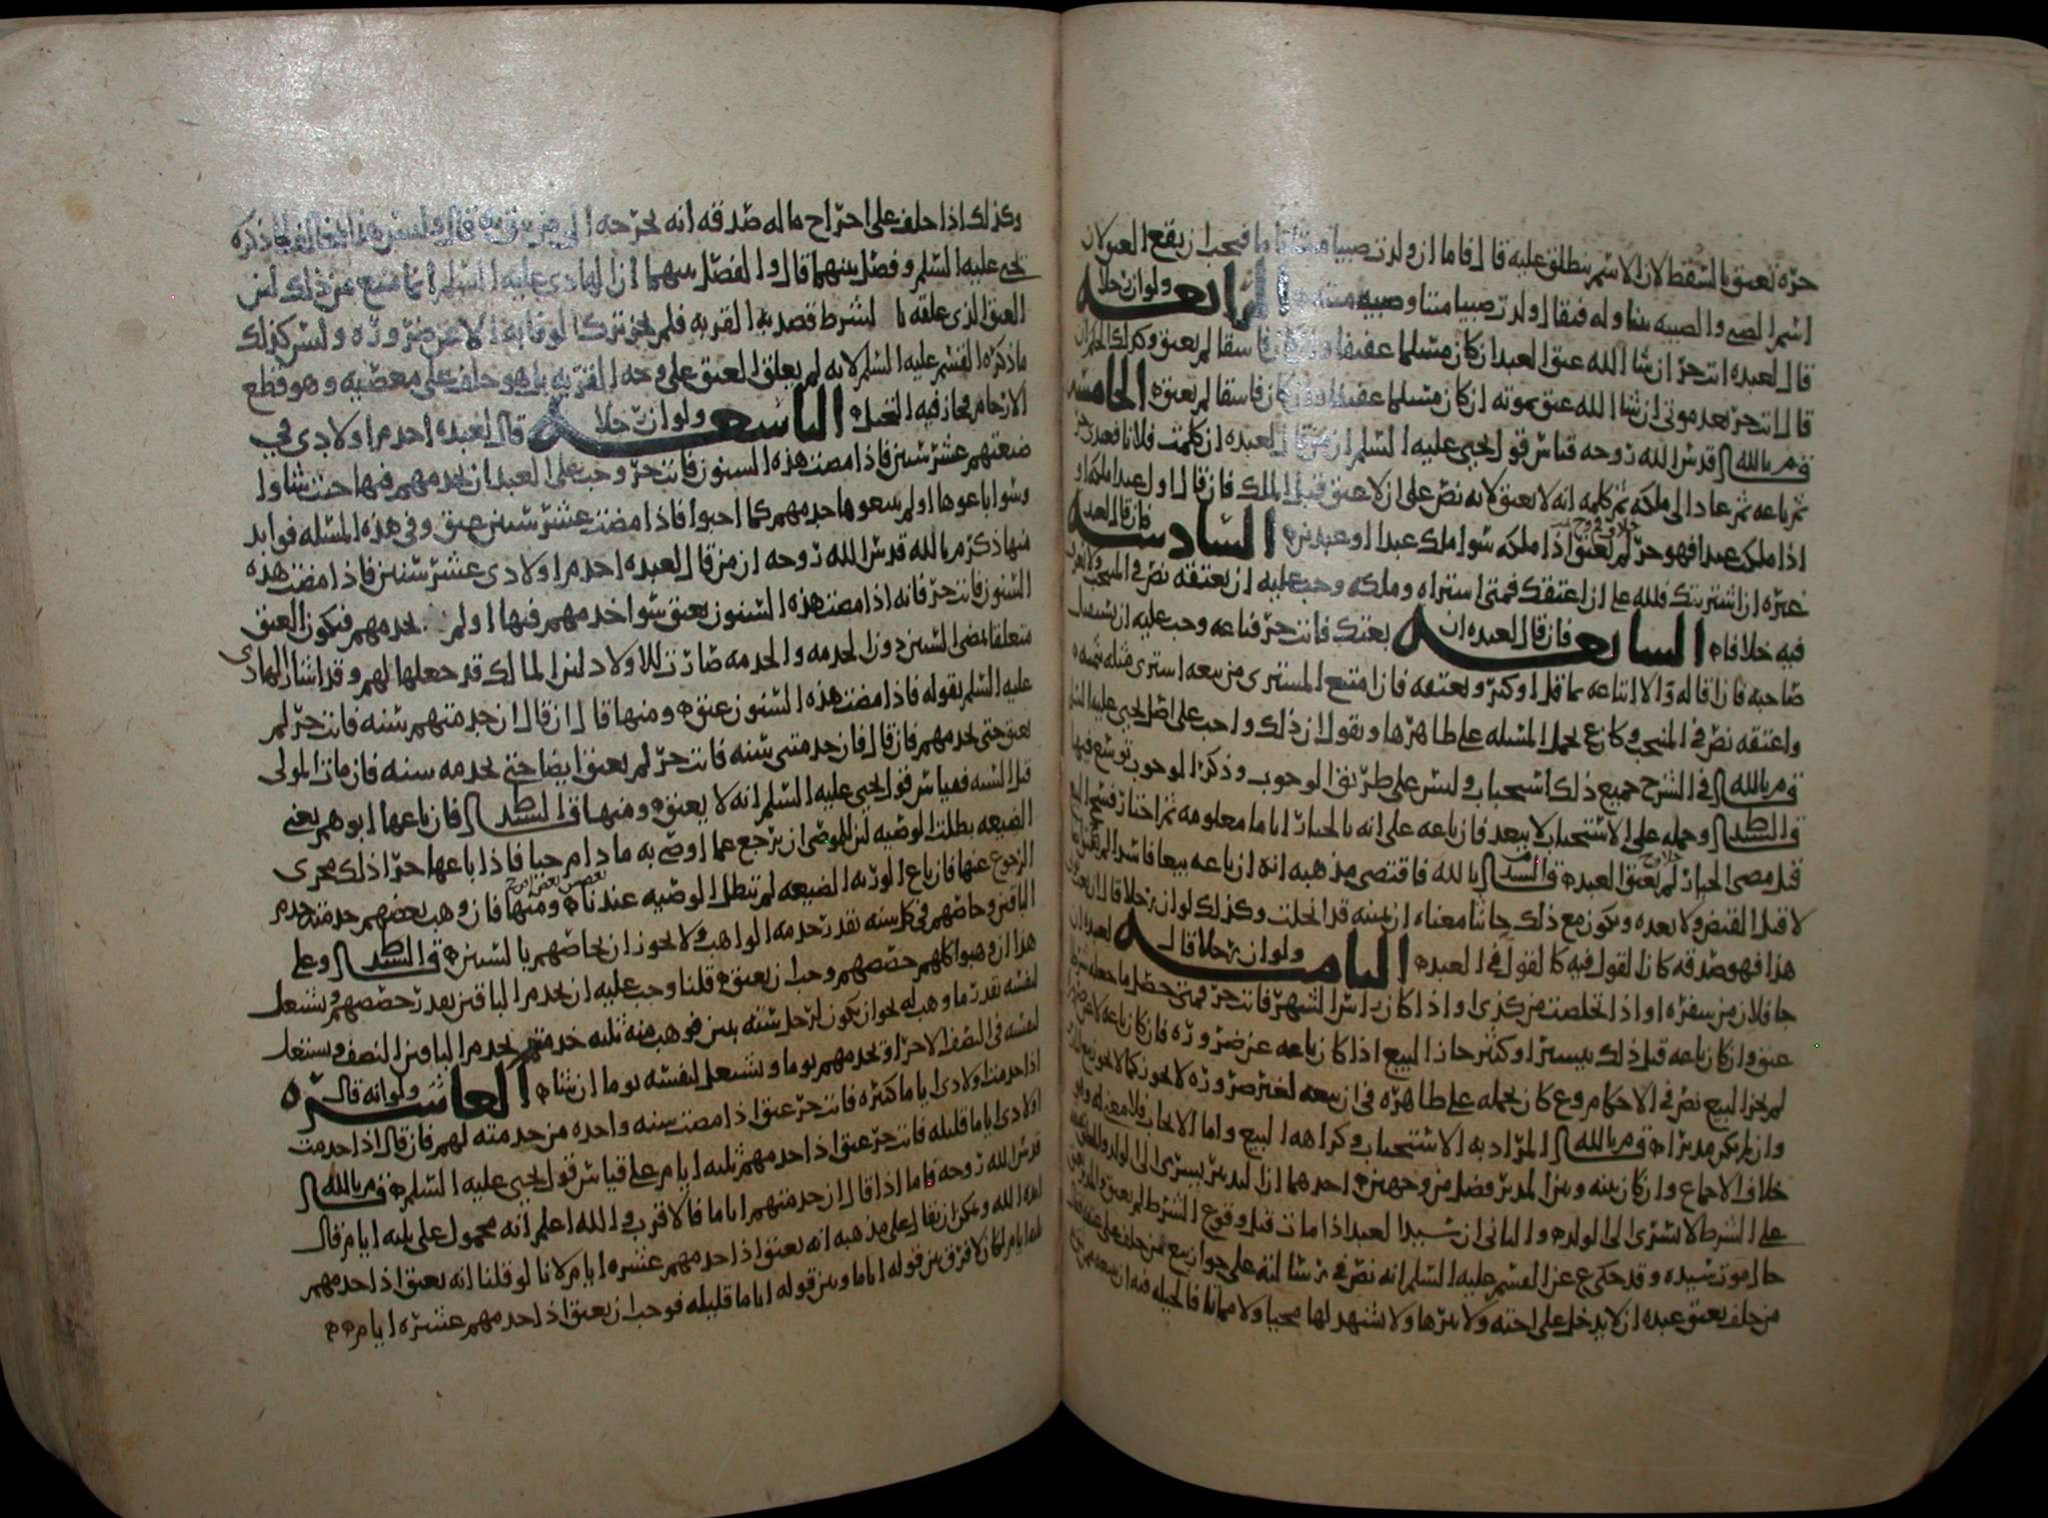 حره لعتق بالسقط لان الاسم ينطلق عليه قال فاما ان ولدت صبيا ميتا فيجب ان يقع العتق لان
اسم الصبي والصبيه يتناوله فيقال ولدت صبيا ميتا وصبيه ميته الرابعه ولو ان رجلا
قال لعبده انت حر ان شا الله عتق العبد ان كان مسلما عفيفا وان كان فاسقا لم يعتق وكذلك الحكم ان
قال انت حر بعد موتي ان شا الله عتق بموته ان كان مسلما عفيفا وان كان فاسقا لم يعتق الخامسه
قال م بالله قدس الله روحه قياس قول يحيى عليه السلم ان من قال لعبده ان كلمت فلانا فعبدي حر
ثم باعه ثم عاد الى ملكه ثم كلمه انه لا يعتق لانه نص على ان لا عتق قبل الملك فان قال اول عبد املكه او
اذا ملكت عبدا فهو حر لم يعتق اذا ملكه سوا ملك عبدا او عبدين السادسه فان قال لعبد
غيره ان اشتريتك فلله علي ان اعتقك فمتى اشتراه وملكه وجب عليه ان يعتقه نص في المنتخب ولا نعرف
فيه خلافا السابعه فان قال لعبده ان بعتك فانت حر فباعه وجب عليه ان يستقيل
صاحبه فان اقاله والا ابتاعه بما قل او كثر ويعتقه فان امتنع المشتري من بيعه اشترى مثله بثمنه
واعتقه نص في المنتخب وكان ع يحمل المسئله على ظاهرها ويقول ان ذلك واجب على اصل يحيى عليه السلم
قال م بالله في الشرح جميع ذلك استحباب وليس على طريق الوجوب وذكر الوجوب توسع فيها
قال السيد ط وحمله على الاستحباب لا يبعد فان باعه على انه بالخيار اياما معلومه ثم اختار فسخ البيع
قبل مضي الخيار لم يعتق العبد قال السيد م بالله فاقتضى مذهبه انه ان باعه بيعا فاسدا لم يعتق
لا قبل القبض ولا بعده ويكون مع ذلك حانثا معناه ان يمينه قد انحلت وكذلك لو ان رجلا قال ان بعت
هذا فهو صدقه كان القول فيه كالقول في العبد الثامنه ولو ان رجلا قال لعبده ان
جا فلان من سفره او اذا تخلصت من كذى او اذا كان راس الشهر فانت حر فمتى حصل ما جعله شرطا
عتق وان كان باعه قبل ذلك بيسير او كثير جاز البيع اذا كان باعه عن ضروره فان كان باعه لا عن ضروره
لم يجز البيع نص في الاحكام وع كان يحمله على ظاهره في ان بيعه لغير ضروره لا يجوز كما لا يجوز بيع المدبر
وان لم يكن مدبرا قال م بالله المراد به الاستحباب وكراهه البيع واما الايجاب فلا معنى له وهو
خلاف الاجماع وان كان بينه وبين المدبر فصل من وجهين احدهما ان التدبير يسري الى الولد والعتق
على الشرط لا يسري الى الولد والثاني ان سيد العبد اذا مات قبل وقوع الشرط لم يعتق والمدبر يعتق
حال موت سيده وقد حكى ع عن القسم عليه السلم انه نص في رسالته على جواز بيع من حلف على عتقه فقال
من حلف بعتق عبده ان لا يدخل على اخته ولا يبرها ولا يشهد لها محيا ولا مماتا فالحيله فيه ان يبيعه ممن
وكذلك اذا حلف على اخراج ماله صدقه انه يخرجه الى من يثق به قال وليس هذا بمخالف لما ذكره
يحيى عليه السلم وفصل بينهما قال والفصل بينهما ان الهادي عليه السلم انما منع من ذلك لان
العتق الذي علقه بالشرط قصد به القربه فلم يجز ترك الوفا به الا عن ضروره وليس كذلك
ما ذكره القسم عليه السلم لانه لم يعلق العتق على وجه القربه بل هو حلف على معصيه وهو قطع
الارحام فجاز فيه الحيل التاسعه ولو ان رجلا قال لعبده اخدم اولادي في
ضيعتهم عشر سنين فاذا مضت هذه السنون فانت حر وجب على العبد ان يخدمهم فيها حيث شاوا
وسوا باعوها او لم يبيعوها خدمهم كما احبوا فاذا مضت عشر سنين عتق وفي هذه المسئله فوايد
منها ذكر م بالله قدس الله روحه ان من قال لعبده اخدم اولادي عشر سنين فاذا مضت هذه
السنون فانت حر فانه اذا مضت هذه السنون يعتق سوا خدمهم فيها او لم يخدمهم فيكون العتق
متعلقا بمضي السنين دون الخدمه والخدمه صارت للاولاد لان المالك قد جعلها لهم وقد اشار الهادي
عليه السلم بقوله فاذا مضت هذه السنون عتق ومنها قال ان قال ان خدمتهم سنه فانت حر لم
يعتق حتى يخدمهم فان قال فان خدمتني سنه فانت حر لم يعتق ايضا حتى يخدمه سنه فان مات المولى
قبل السنه فقياس قول يحيى عليه السلم انه لا يعتق ومنها قال السيد ط فان باعها ابوهم يعني
الضيعه بطلت الوصيه لان للموصي ان يرجع عما اوصى به ما دام حيا فاذا باعها جرا ذلك مجرى
الرجوع عنها فان باع الورثه الضيعه لم تبطل الوصيه عندنا ومنها فان وهب بعضهم خدمته خدم
الباقين وحاصهم في كل سنه بقدر خدمه الواهب ولا يجوز ان يحاصهم بالسنين قال السيد ط وعلى
هذا ان وهبوا كلهم حصصهم وجب ان يعتق قلنا وجب عليه ان يخدم الباقين بقدر حصصهم ويستعمل
لنفسه بقدر ما وهب له نحو ان يكون لرجل ستة بنين فوهب منه ثلثه خدمتهم يخدم الباقين النصف ويستعمل
لنفسه في النصف الاخر او يخدمهم يوما ويستعمل لنفسه يوما ان شا العاشره ولو انه قال
اذا خدمت اولادي اياما كثيره فانت حر عتق اذا مضت سنه واحده من خدمته لهم فان قال اذا خدمت
اولادي اياما قليله فانت حر عتق اذا خدمهم ثلثه ايام على قياس قول يحيى عليه السلم قال م بالله
قدس الله روحه فاما اذا قال ان خدمتهم اياما فالاقرب والله اعلم انه محمول على ثلثه ايام قال
ايده الله ويمكن ان يقال على مذهبه انه يعتق اذا خدمهم عشره ايام لانا لو قلنا انه يعتق اذا خدمهم
ثلثه ايام لكان لا فرق بين قوله اياما وبين قوله اياما قليله فوجب ان يعتق اذا خدمهم عشره ايام